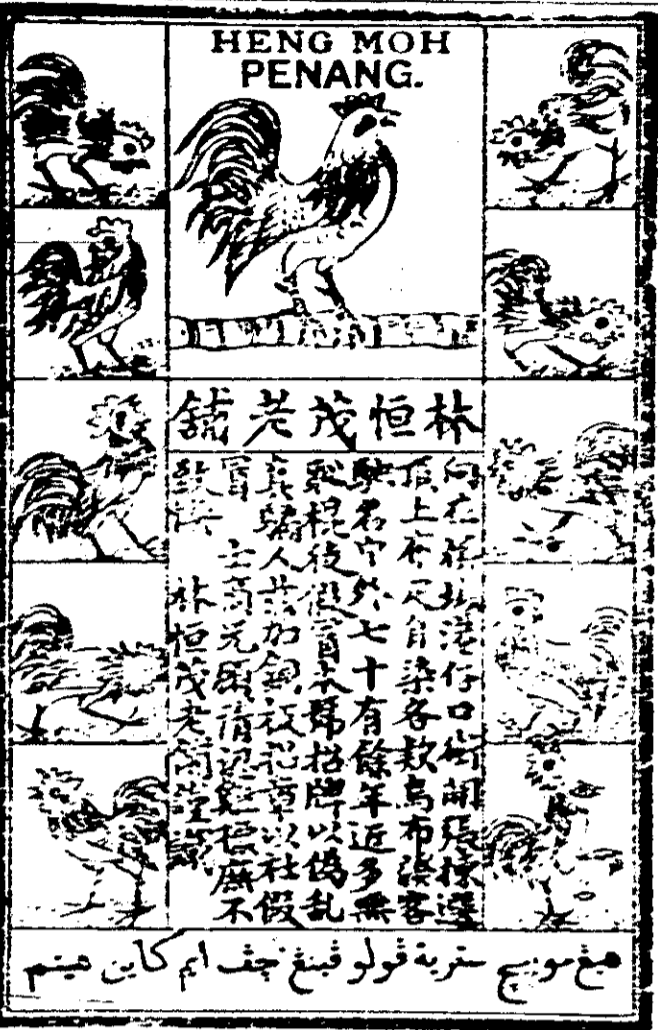 HENG MOH
PENANG.
林恒茂老舖
向在梹城港仔口街開張揀選
頂上原尺自染各款烏布染客
馳名中外七十有餘年近多無
耻棍徒假冒本號招牌以偽乱
真騙人茲加 記章以杜假
冒 士商光顧請認 標庶不
致悮 林恒茂老舖謹啟
هيڠ مو بيچ سترية ڤولو ڤينڠ چڤ ايم كاين هيتم